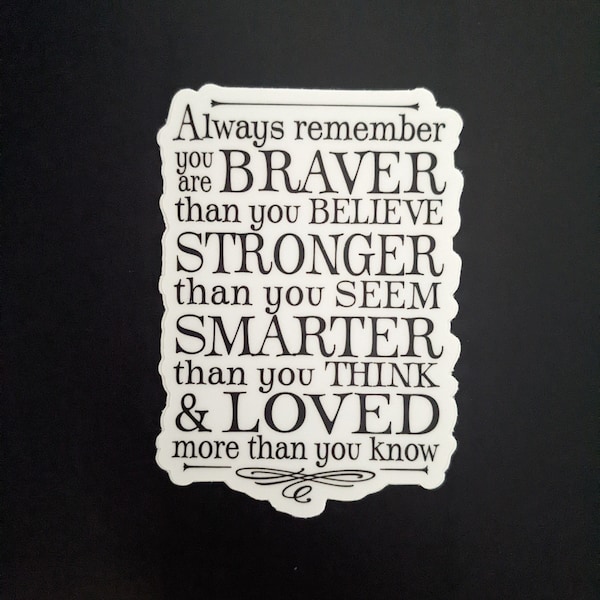 Always remember
you are BRAVER
than you BELIEVE
STRONGER
than you SEEM
SMARTER
than you THINK
& LOVED
more than you know